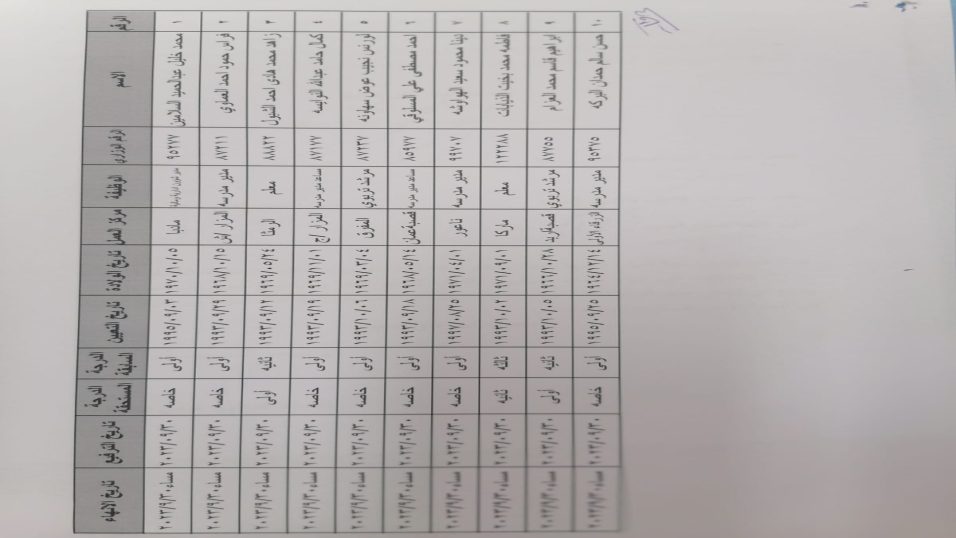 الرقم الاسم الرقم الوزاري الوظيفة مركز العمل تاريخ الولادة تاريخ التعيين الدرجة السابقة الدرجة المستحقة تاريخ الترفيع تاريخ الانهاء
١ محمد خليل عبدالحميد السلامين ٩٥٢٧٧ مادبا ١٩٧٠/١٠/٠٥ ١٩٩٥/٠٩/٠٣ أولى خاصه ٢٠٢٣/٠٩/٣٠ مساء ٢٠٢٣/٩/٣٠
٢ فراس حمود احمد العساوي ٨٧٢١١ مدير مدرسه المزار/ش ١٩٦٨/١٠/١٥ ١٩٩٣/٠٩/٢٩ أولى خاصه ٢٠٢٣/٠٩/٣٠ مساء ٢٠٢٣/٩/٣٠
٣ زاهد محمد هادي احمد الشبول ٨٨٨٢٢ معلم الرمثا ١٩٦٩/٠٥/٢٤ ١٩٩٣/٠٩/١٢ ثانيه أولى ٢٠٢٣/٠٩/٣٠ مساء ٢٠٢٣/٩/٣٠
٤ كمال حامد عبدالله النوايسه ٨٧١٧٧ مساعد مدير مدرسه المزار/ج ١٩٦٩/١١/٠١ ١٩٩٣/٠٩/١٩ أولى خاصه ٢٠٢٣/٠٩/٣٠ مساء ٢٠٢٣/٩/٣٠
٥ لورنس نجيب عوض سهاونه ٨٧٢٣٧ مرشد تربوي المفرق ١٩٦٩/٠٣/٠٤ ١٩٩٣/١٠/٠٦ أولى خاصه ٢٠٢٣/٠٩/٣٠ مساء ٢٠٢٣/٩/٣٠
٦ احمد مصطفى علي ٨٥٩٧٧ مساعد مدير مدرسه قصبة عمان ١٩٦٨/٠٥/١٤ ١٩٩٣/٠٩/١٨ أولى خاصه ٢٠٢٣/٠٩/٣٠ مساء ٢٠٢٣/٩/٣٠
٧ دينا محمود سعيد الهواوشه ٩٩٧٠٧ مدير مدرسه ناعور ١٩٧١/٠٤/٠١ ١٩٩٧/٠٨/٢٥ أولى خاصه ٢٠٢٣/٠٩/٣٠ مساء ٢٠٢٣/٩/٣٠
٨ فاطمه محمد بخيت الذيابات ١٢٢٢٨٨ معلم ماركا ١٩٧١/٠٩/٠١ ١٩٩٣/١٠/٠٢ ثالثه ثانيه ٢٠٢٣/٠٩/٣٠ مساء ٢٠٢٣/٩/٣٠
٩ ابراهيم قاسم محمد العزام ٨٧٧٥٥ مرشد تربوي قصبة اربد ١٩٦٦/١٠/٢٨ ١٩٩٣/١٠/٠٥ ثانيه أولى ٢٠٢٣/٠٩/٣٠ مساء ٢٠٢٣/٩/٣٠
١٠ حسن سالم حمدان البركه ٩٥٣٧٥ مدير مدرسه الزرقاء الاولى ١٩٦٤/١٢/١٤ ١٩٩٥/٠٩/٢٥ أولى خاصه ٢٠٢٣/٠٩/٣٠ مساء ٢٠٢٣/٩/٣٠